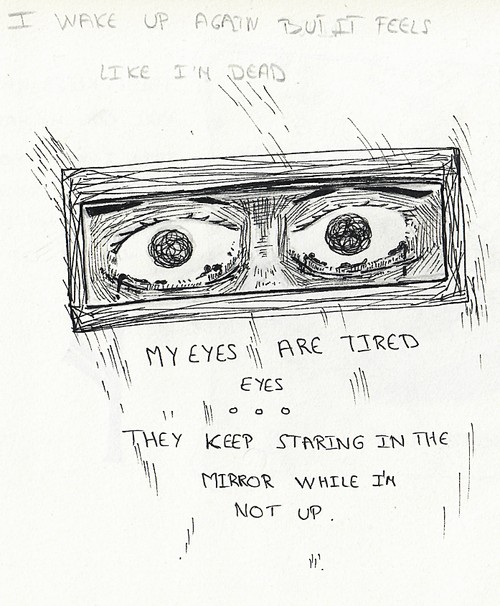 I WAKE UP AGAIN BUT IT FEELS
LIKE I'M DEAD.
MY EYES ARE TIRED
EYES
THEY KEEP STARING IN THE
MIRROR WHILE I'M
NOT UP.